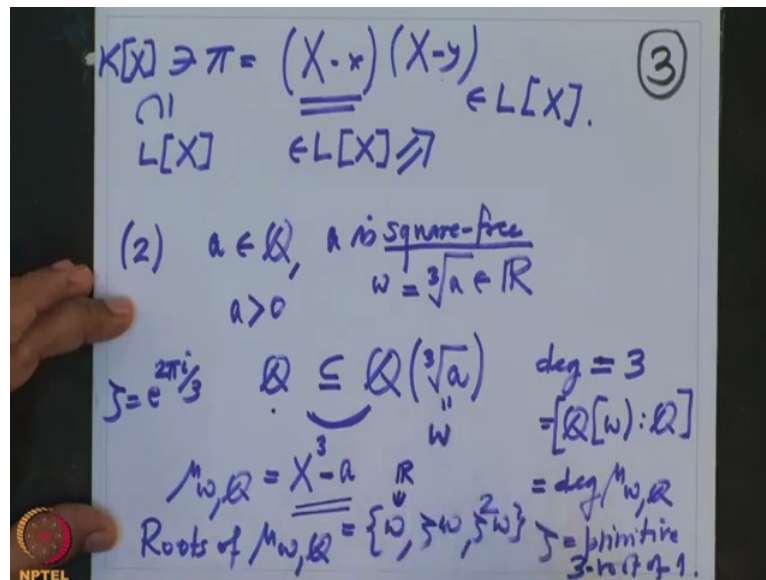 K[X] ∋ π = (X-x)(X-y) ∈ L[X].
③
∩|
L[X] ∈ L[X]
(2) a ∈ ℚ, a is square-free
a>0 w = ∛a ∈ ℝ
ζ = e^{2πi/3} ℚ ⊆ ℚ(∛a) deg = 3
w = [ℚ[w):ℚ]
μ_{w,ℚ} = X^3-a ℝ = deg μ_{w,ℚ}
Roots of μ_{w,ℚ} = {w, ζw, ζ^2w} ζ = primitive
3-root of 1.
NPTEL